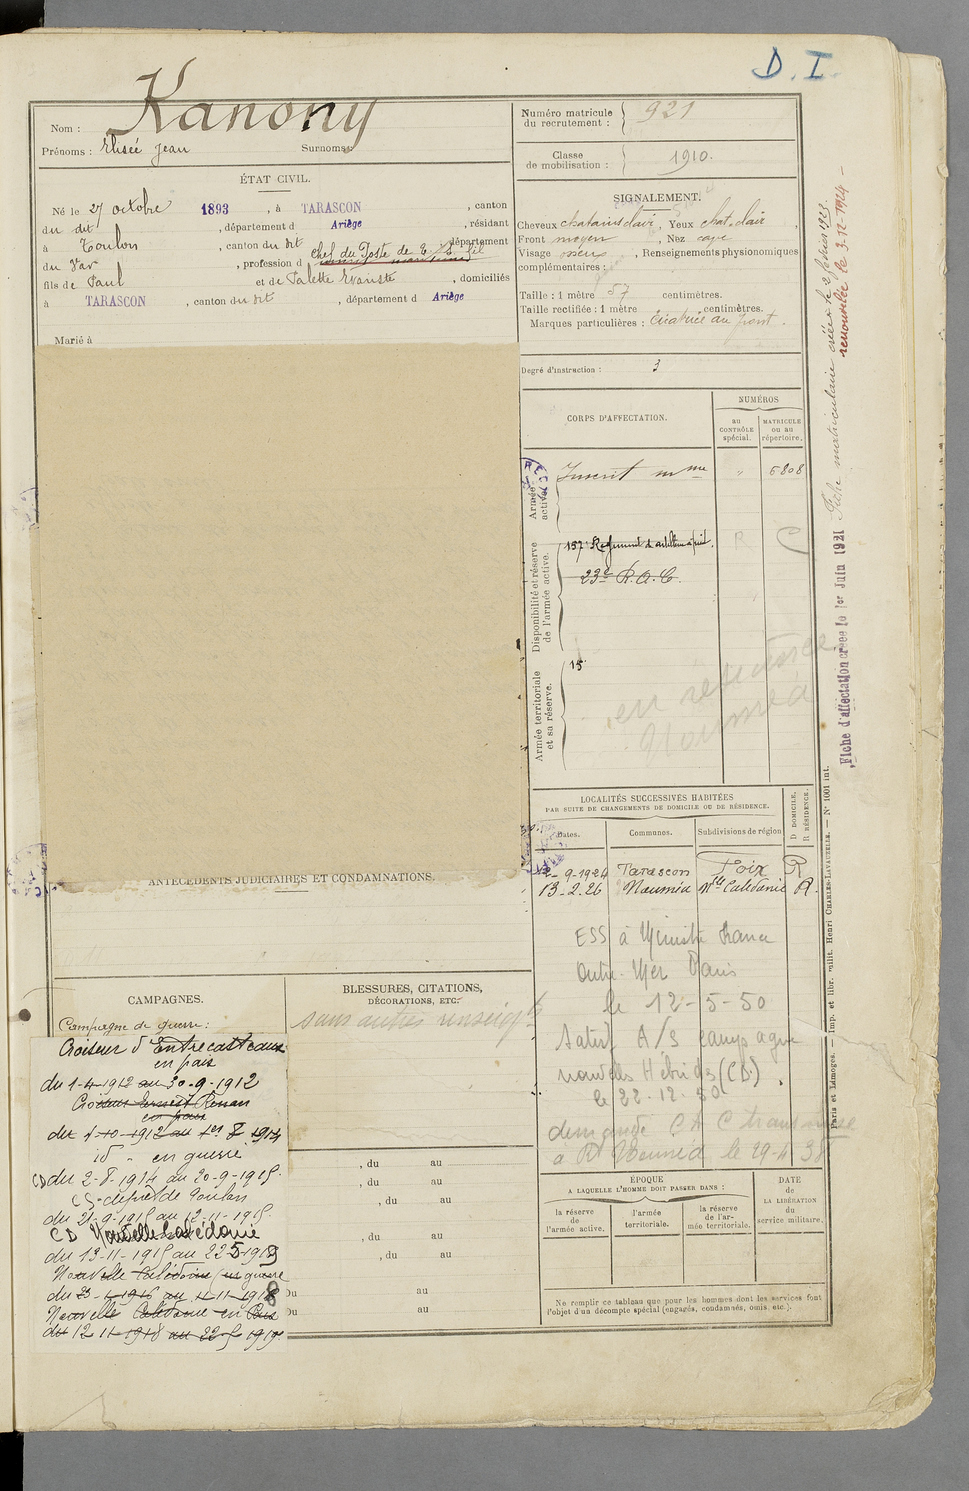 D. I.
Nom : Kanony
Prénoms : Elisée Jean Surnoms :
ÉTAT CIVIL.
Né le 27 octobre 1893, à TARASCON, canton
du dit, département d Ariège, résidant
à Toulon, canton du dit département
du Var, profession d chef du Poste de T.S.fil
fils de Paul et de Palette Evariste, domiciliés
à TARASCON, canton du dit, département d Ariège
Marié à
Numéro matricule du recrutement : 921
Classe de mobilisation : 1910.
SIGNALEMENT.
Cheveux chatains clair, Yeux chat. clair,
Front moyen, Nez cave
Visage, Renseignements physionomiques
complémentaires :
Taille : 1 mètre 57 centimètres.
Taille rectifiée : 1 mètre centimètres.
Marques particulières : Cicatrice au front.
Degré d'instruction : 3
CORPS D'AFFECTATION.
NUMÉROS
AU CONTRÔLE spécial.
MATRICULE ou au répertoire.
Armée active.
Inscrit mme " 6808
Disponibilité et réserve de l'armée active.
157e Régiment d'artillerie à pied. R C
23e R.A.C.
Armée territoriale et sa réserve.
15
en résidence
Nouméa
Fiche matriculaire créée le 2 février 1923
renouvelée le 3-12-1924 -
Fiche d'affectation créée le 1er Juin 1921
LOCALITÉS SUCCESSIVES HABITÉES
PAR SUITE DE CHANGEMENTS DE DOMICILE OU DE RÉSIDENCE.
Dates. Communes. Subdivisions de région
D DOMICILE, R RÉSIDENCE.
-9-1924 Tarascon Foix R
13-2-26 Nouméa Nlle Calédonie R.
ESS à Ministre France
Outre-Mer Paris
le 12-5-50
Satisf A/S campagne
nouvelles Hébrides (CD)
le 22-12-50
demande
à Nouméa le 29-4-38
ANTÉCÉDENTS JUDICIAIRES ET CONDAMNATIONS.
CAMPAGNES.
Campagne de guerre :
Croiseur d'Entrecasteaux
en paix
du 1-4-1912 au 30-9-1912
Croiseur Ernest Renan
en paix
du 1-10-1912 au 1er 8 1914
id - en guerre
CD du 2-8-1914 au 20-9-1915
CS - dépôt de Toulon
du 21-9-1915 au 12-11-1915.
CD Nouvelle Calédonie
du 13-11-1915 au 22 5-1919
Nouvelle Calédonie (en guerre
du 23-1-1916 au 11-11-1918
Nouvelle Calédonie en Paix
du 12-11-1918 au 22-5-1919
BLESSURES, CITATIONS,
DÉCORATIONS, ETC.
sans autres renseigts
, du au
, du au
, du au
, du au
, du au
Du au
Du au
ÉPOQUE
A LAQUELLE L'HOMME DOIT PASSER DANS :
la réserve de l'armée active.
l'armée territoriale.
la réserve de l'armée territoriale.
DATE de LA LIBÉRATION du service militaire.
Ne remplir ce tableau que pour les hommes dont les services font
l'objet d'un décompte spécial (engagés, condamnés, omis, etc.).
Paris et Limoges. — Imp. et libr. milit. Henri CHARLES-LAVAUZELLE. — N° 1001 int.